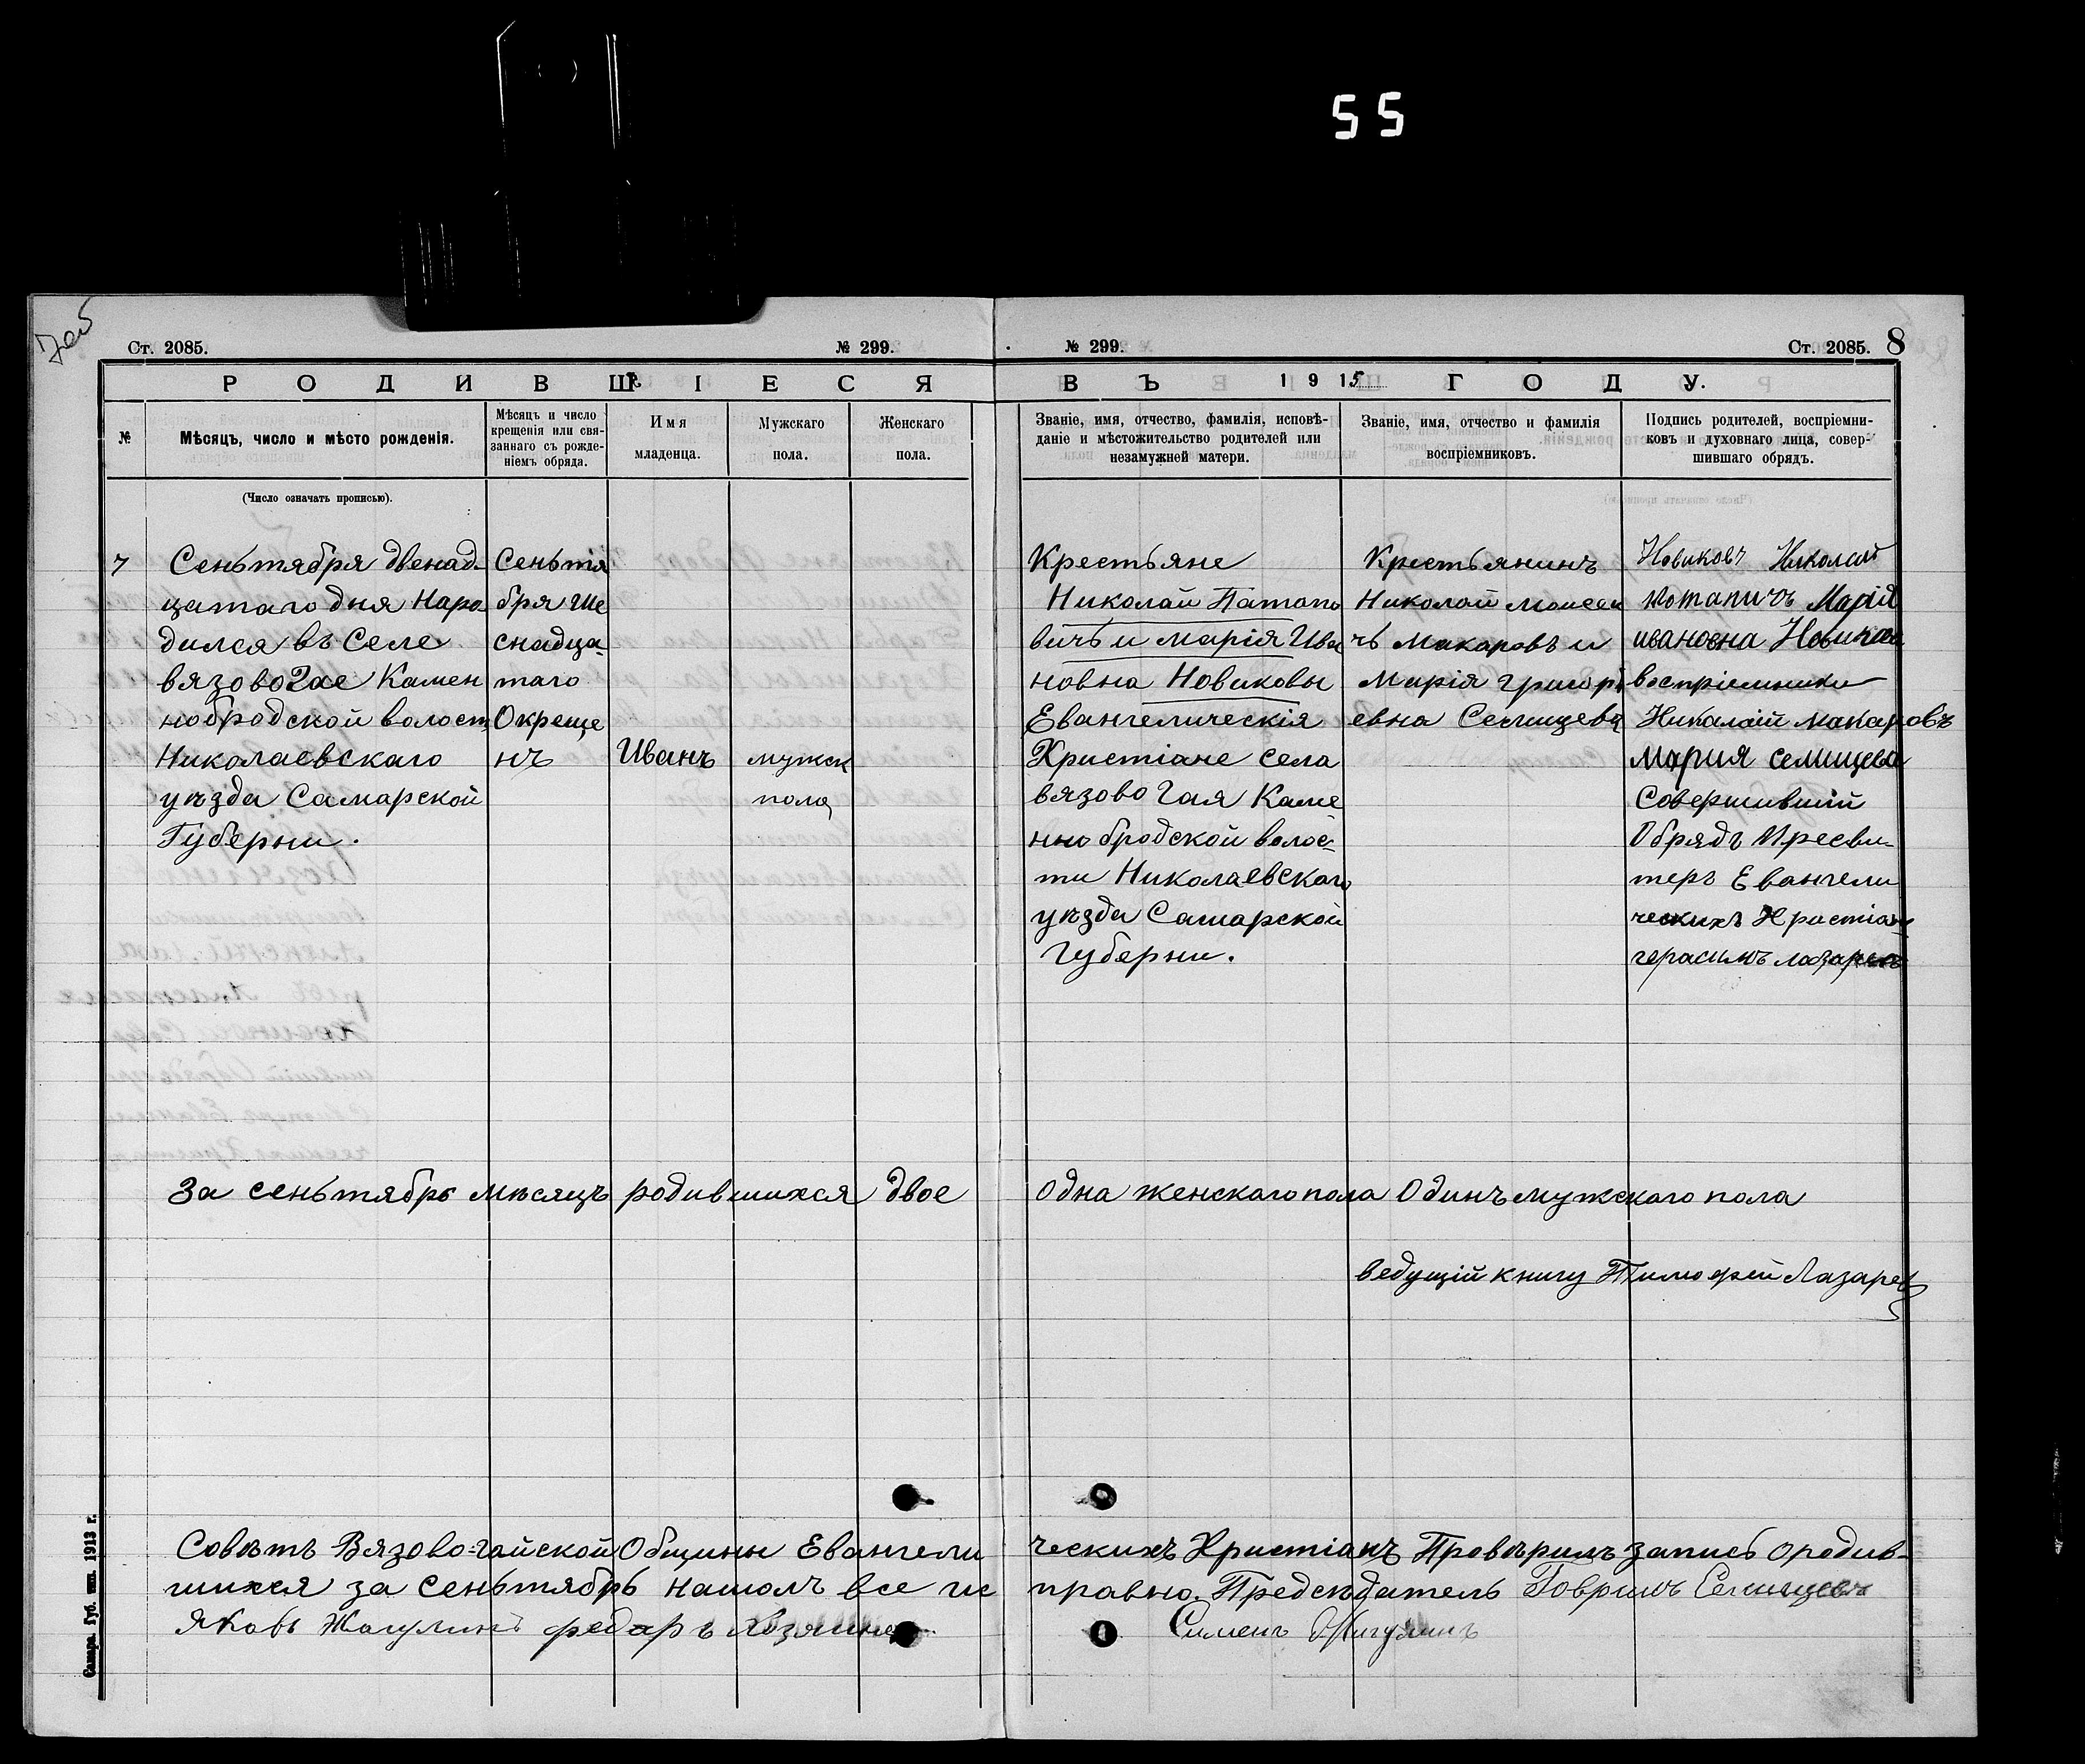 55
Ст. 2085.
№ 299.
№ 299.
Ст. 2085. 8
РОДИВШІЕСЯ
ВЪ 1915 ГОДУ.
№
Мѣсяцъ, число и мѣсто рожденія.
Мѣсяцъ и число
крещенія или свя-
заннаго съ рожде-
ніемъ обряда.
Имя
младенца.
Мужскаго
пола.
Женскаго
пола.
Званіе, имя, отчество, фамилія, исповѣ-
даніе и мѣстожительство родителей или
незамужней матери.
Званіе, имя, отчество и фамилія
воспріемниковъ.
Подпись родителей, воспріемни-
ковъ и духовнаго лица, совер-
шившаго обрядъ.
(Число означать прописью).
7
Сеньтября двенад-
цатаго дня Наро
дился въ Селе
вязово Гае Камен
нобродской волост
Николаевскаго
уѣзда Самарской
Губерни.
Сеньтя
бря Ше
снадца-
таго
Окреще
нъ
Иванъ
мужск
пола
Крестьяне
Николай Патапо
вичъ и Марія Ива
новна Новиковы
Евангелическія
Христіане села
вязово Гая Каме
нно бродской волос-
ти Николаевскаго
уѣзда Самарской
Губерни.
Крестьянинъ
Николай Моисеи
чъ Макаровъ и
Марія григорі
евна Семищева
Новиковъ Николай
потапичъ Марія
ивановна Новикова
воспріемники
Николай макаровъ
Мария семищева
Совершившій
Обрядъ Пресви-
теръ Евангели
ческихъ Христіан
герасимъ лазаревъ
За сеньтябрь мѣсяцъ родившихся двое
Одна женскаго пола Одинъ мужскаго пола
ведущій книгу Тимофей Лазаревъ
Совѣтъ Вязово=гайской Общины Евангели
ческихъ Христіанъ Провѣрилъ запись о родив-
шихся за сеньтябрь нашолъ все ис
правно. Предсѣдатель Говрилъ Семищевъ
Яковъ Жагулинъ федаръ
Симень Жигулинъ
Самара. Губ. тип. 1913 г.